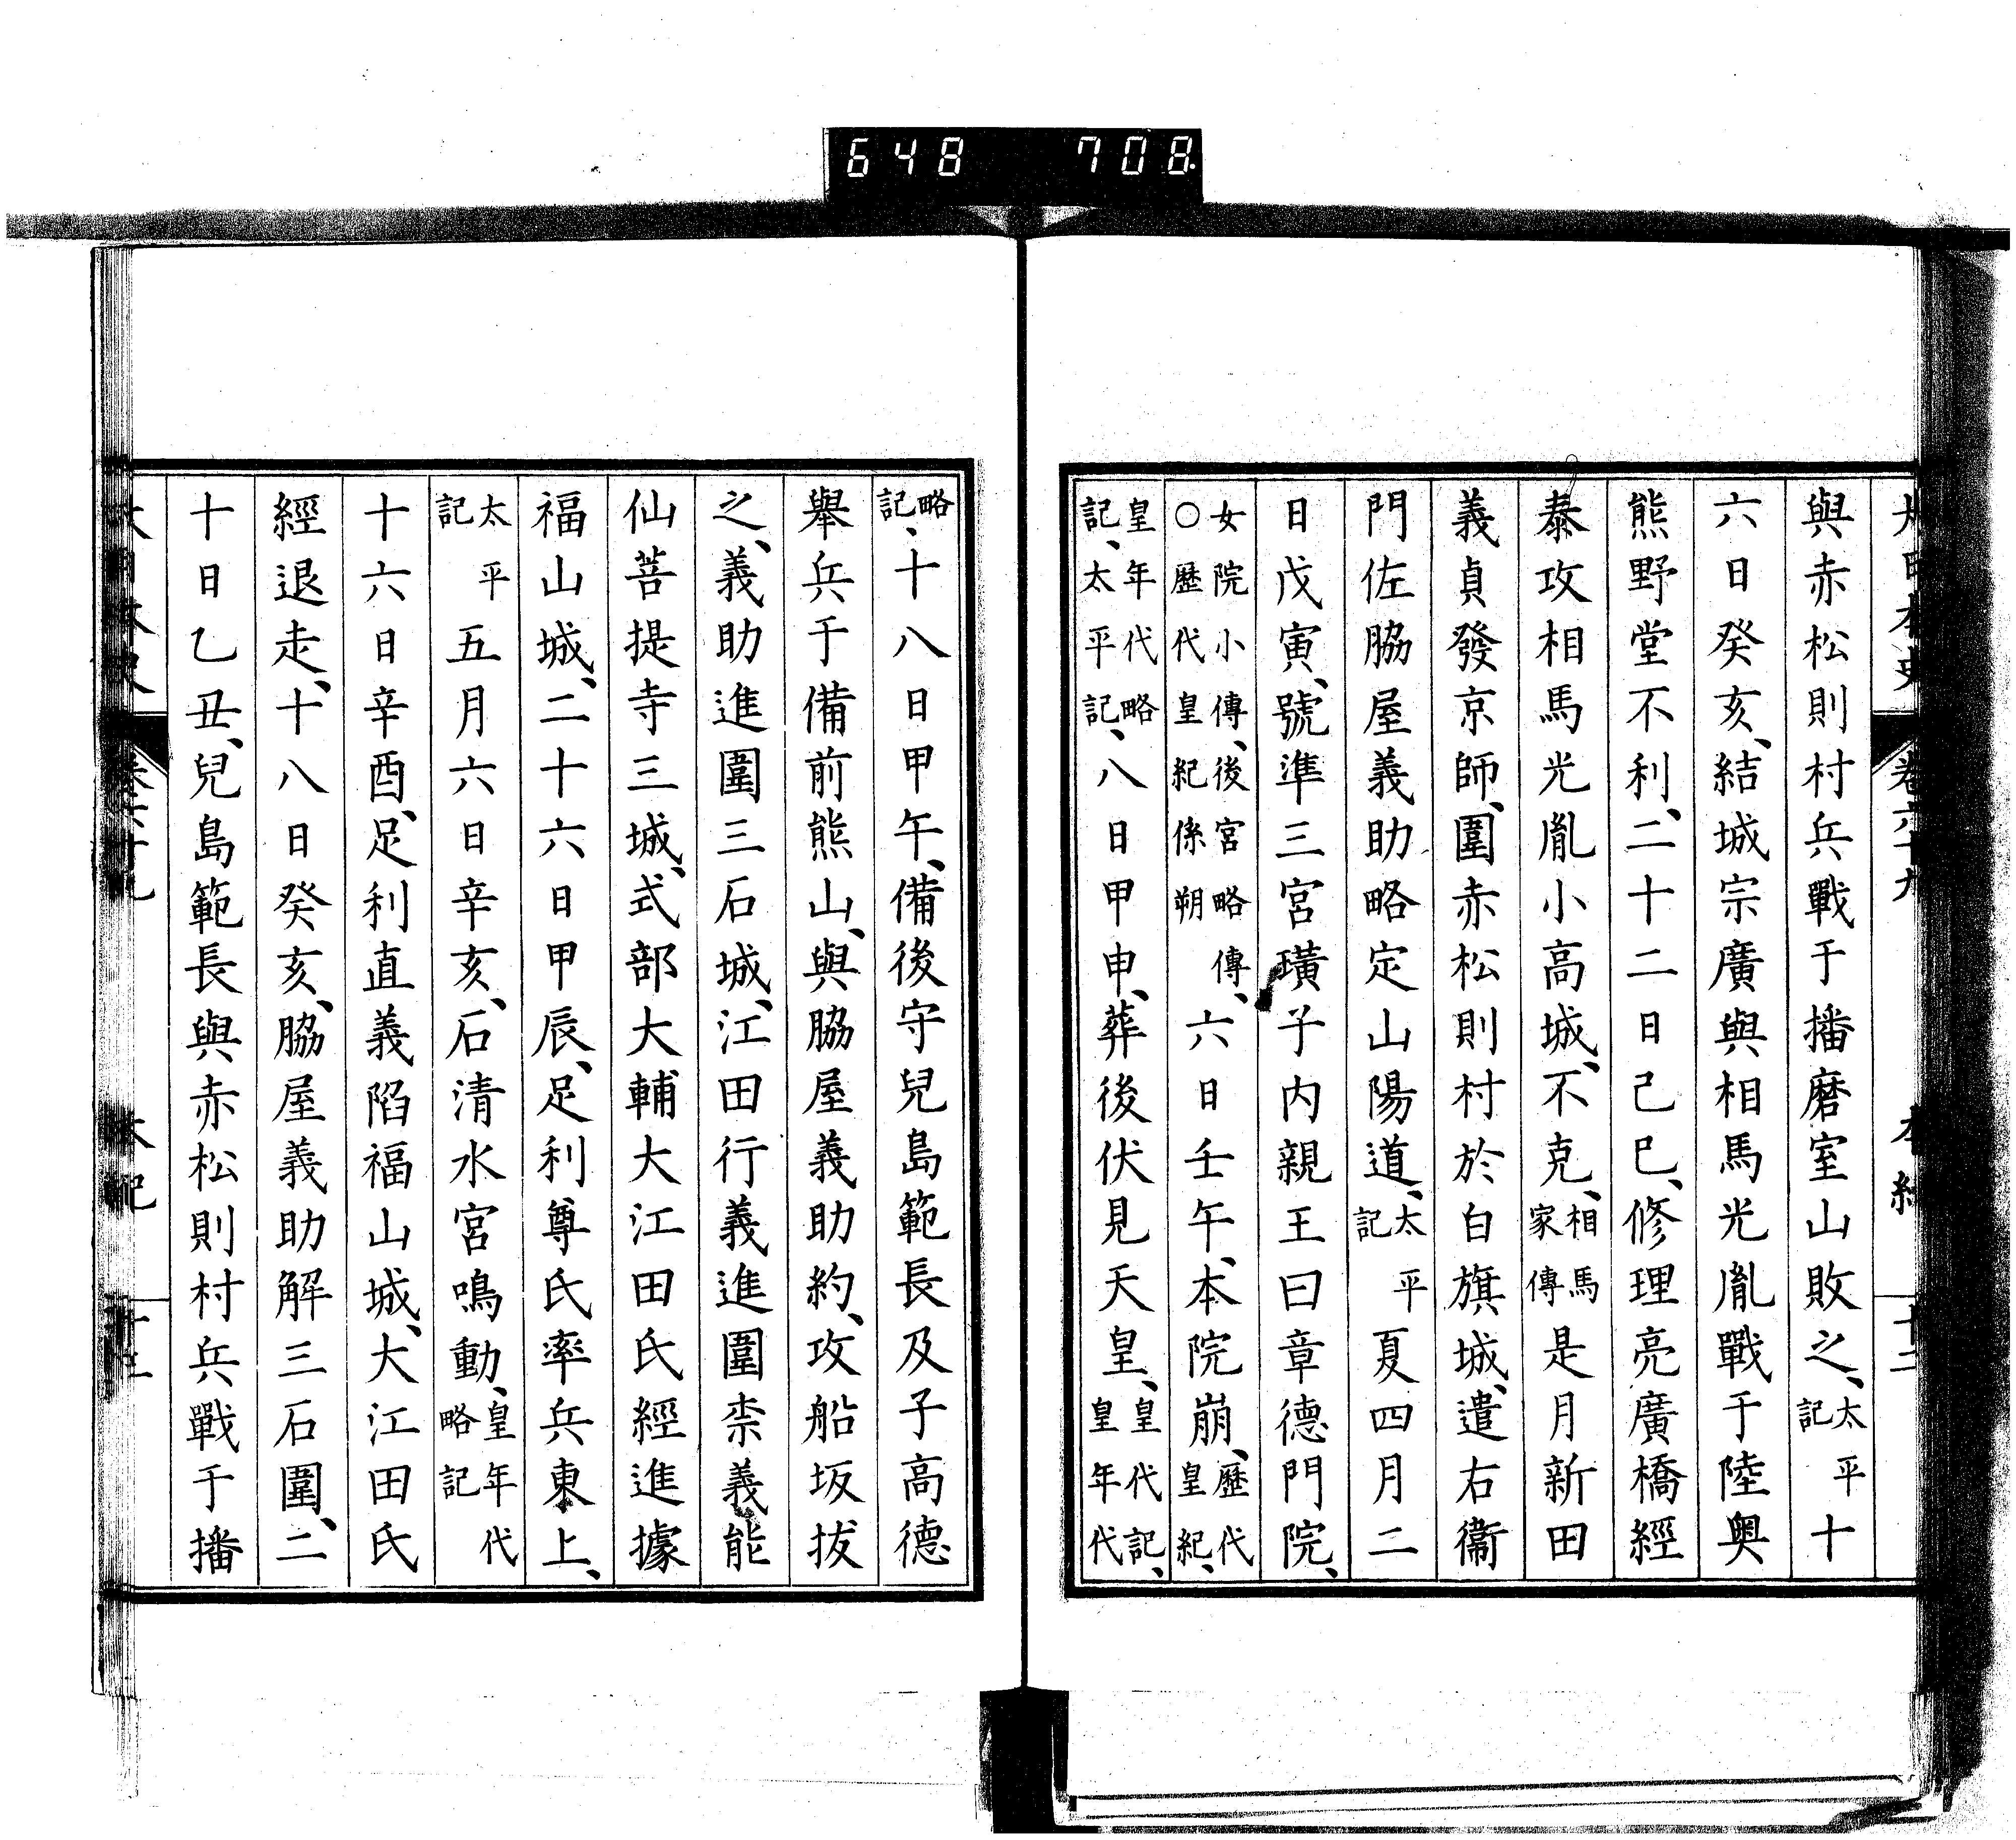 648 708
大日本史 卷六十九 本紀 十二
與赤松則村兵戰于播磨室山敗之、太平記十
六日癸亥、結城宗廣與相馬光胤戰于陸奧
熊野堂不利、二十二日己巳、修理亮廣橋經
泰攻相馬光胤小高城、不克、相馬家傳是月新田
義貞發京師、圍赤松則村於白旗城、遣右衞
門佐脇屋義助略定山陽道、太平記夏四月二
日戊寅、號準三宮㼅子内親王曰章德門院、
女院小傳、後宮略傳、○歷代皇紀係朔六日壬午、本院崩、歷代皇紀、
皇年代略記、太平記、八日甲申、葬後伏見天皇、皇代記、皇年代
略記、十八日甲午、備後守兒島範長及子高德
舉兵于備前熊山、與脇屋義助約、攻船坂拔
之、義助進圍三石城、江田行義進圍柰義能
仙菩提寺三城、式部大輔大江田氏經進據
福山城、二十六日甲辰、足利尊氏率兵東上、
太平記五月六日辛亥、石清水宮鳴動、皇年代略記
十六日辛酉、足利直義陷福山城、大江田氏
經退走、十八日癸亥、脇屋義助解三石圍、二
十日乙丑、兒島範長與赤松則村兵戰于播
大日本史 卷六十九 本紀